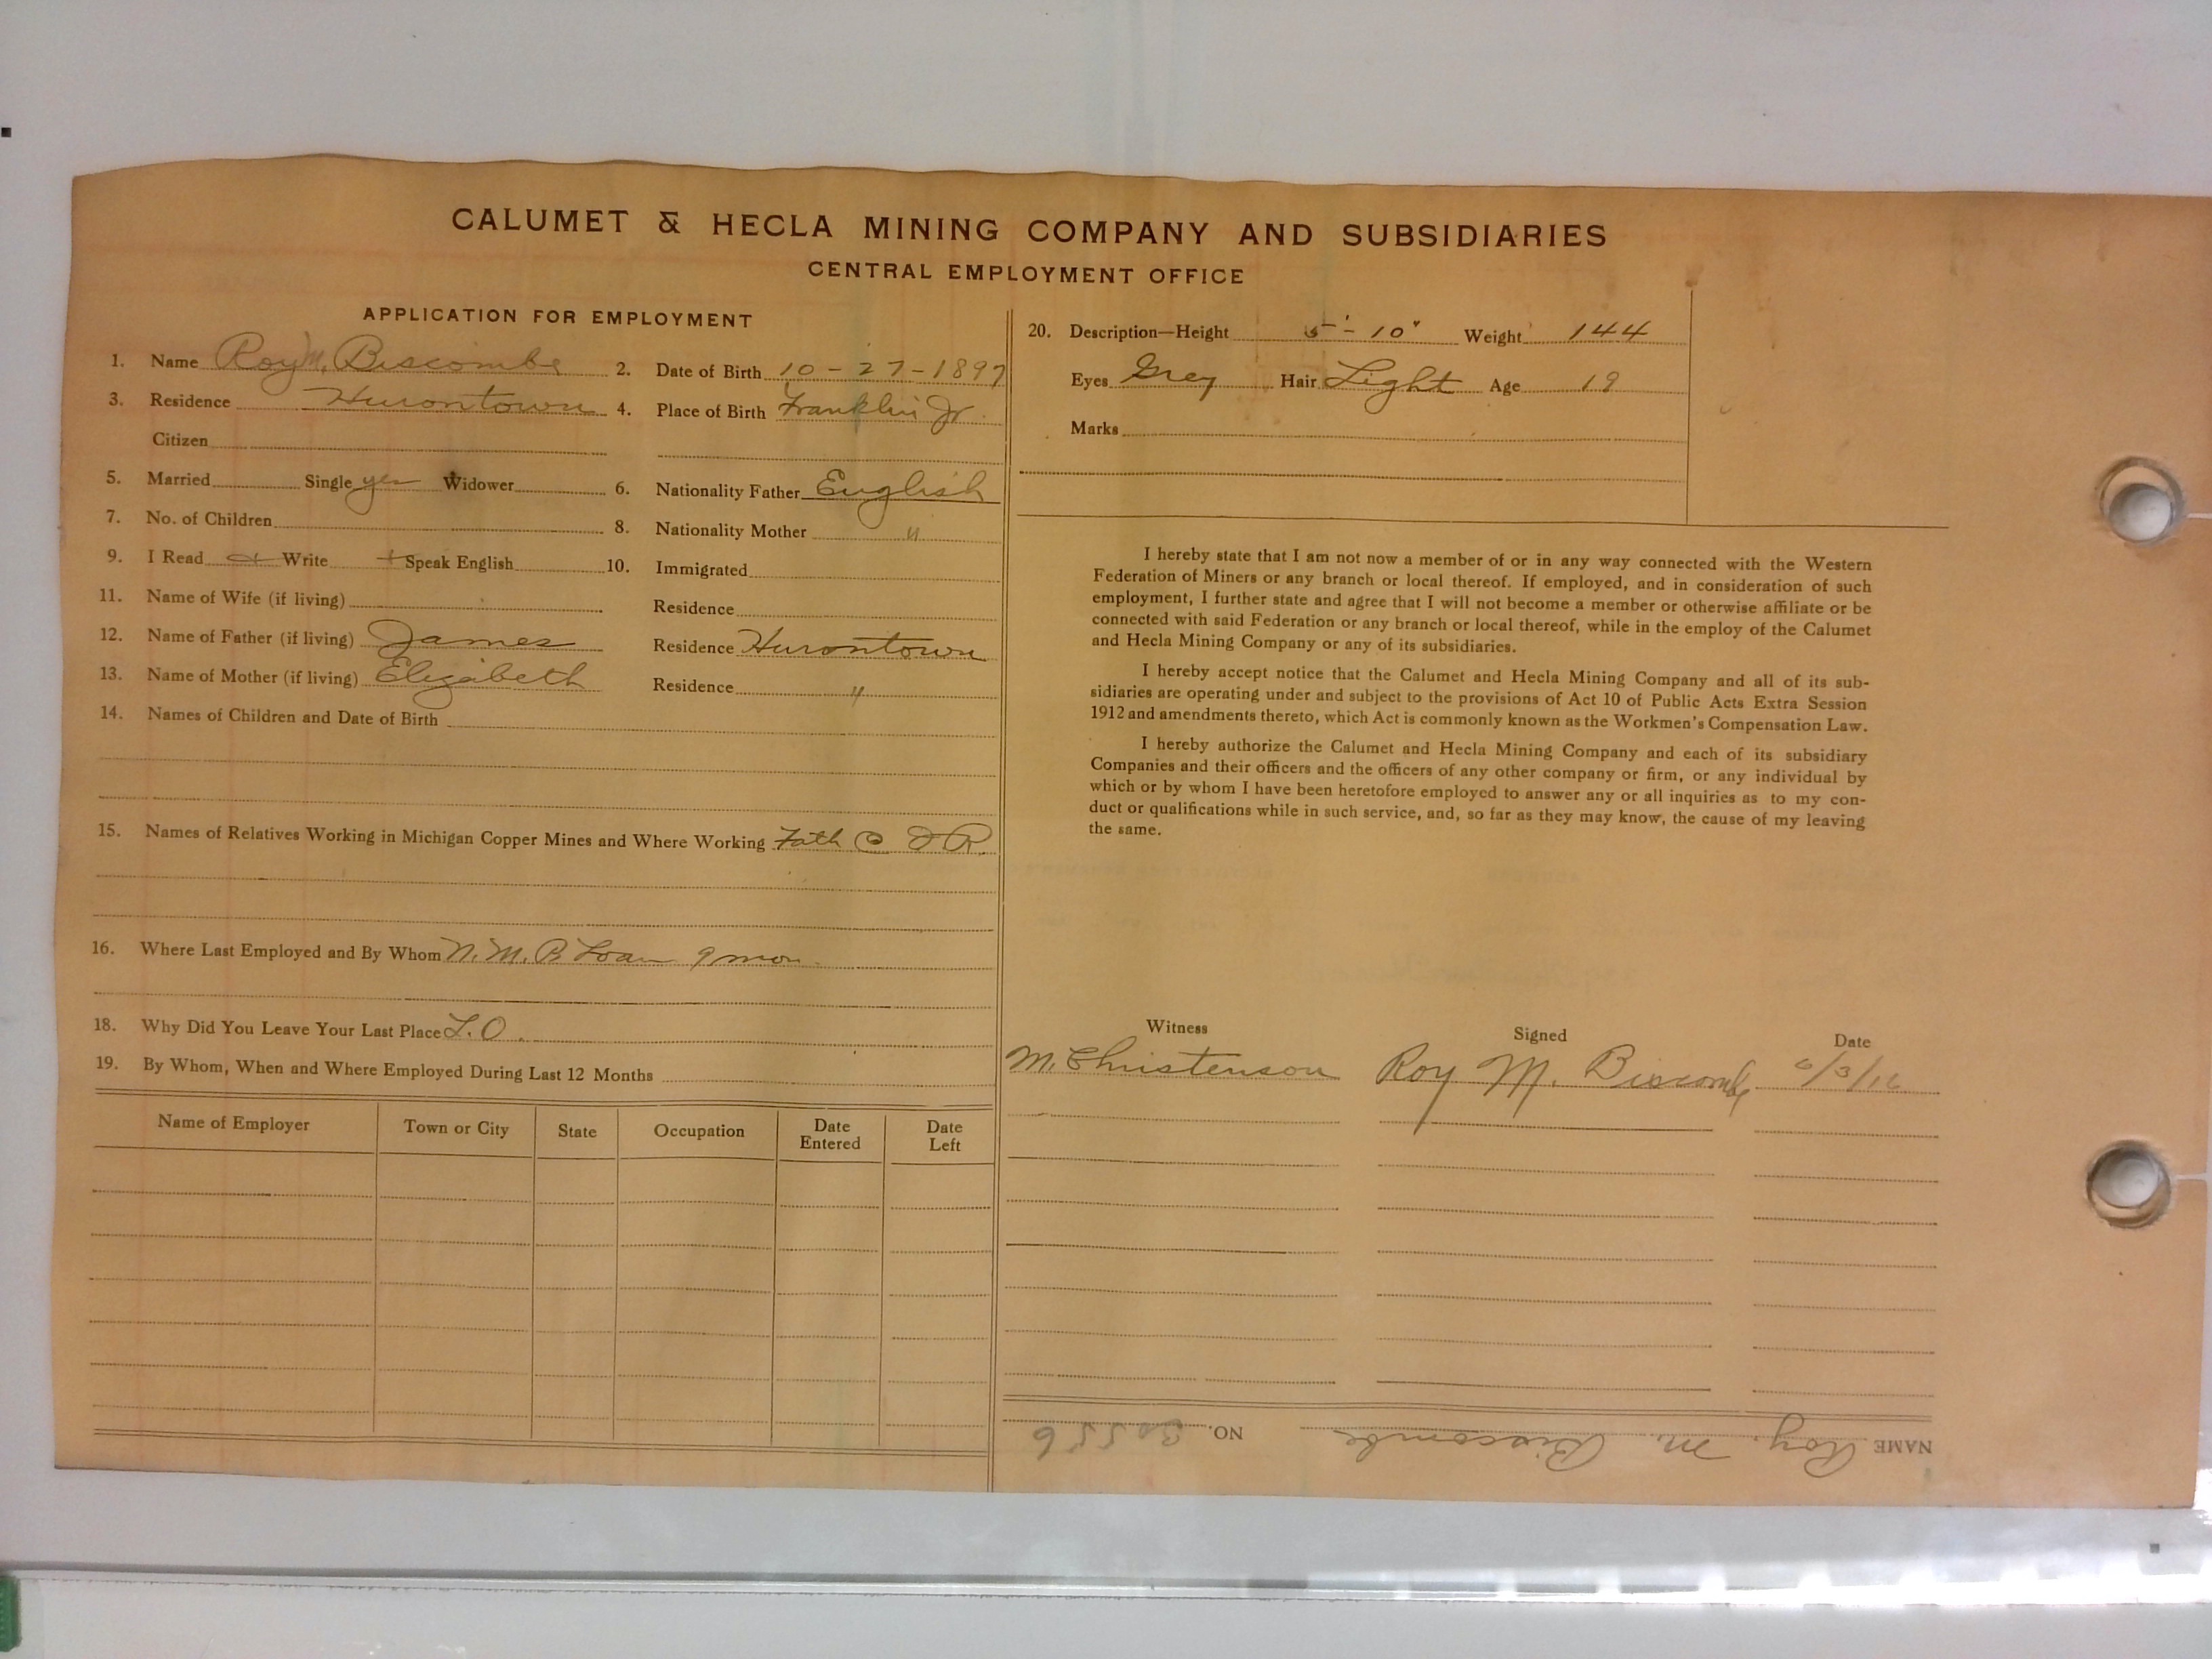 CALUMET & HECLA MINING COMPANY AND SUBSIDIARIES
CENTRAL EMPLOYMENT OFFICE
APPLICATION FOR EMPLOYMENT
1. Name Roy M. Biscombe 2. Date of Birth 10-27-1897
3. Residence Hurontown 4. Place of Birth Franklin Jr.
Citizen
5. Married Single yes Widower 6. Nationality Father English
7. No. of Children 8. Nationality Mother "
9. I Read + Write + Speak English 10. Immigrated
11. Name of Wife (if living) Residence
12. Name of Father (if living) James Residence Hurontown
13. Name of Mother (if living) Elizabeth Residence "
14. Names of Children and Date of Birth
15. Names of Relatives Working in Michigan Copper Mines and Where Working Fath @ I R.
16. Where Last Employed and By Whom N. M. B Loan 9 mon.
18. Why Did You Leave Your Last Place L.O.
19. By Whom, When and Where Employed During Last 12 Months
Name of Employer Town or City State Occupation Date Entered Date Left
20. Description—Height 5'-10" Weight 144
Eyes Grey Hair Light Age 19
Marks
I hereby state that I am not now a member of or in any way connected with the Western
Federation of Miners or any branch or local thereof. If employed, and in consideration of such
employment, I further state and agree that I will not become a member or otherwise affiliate or be
connected with said Federation or any branch or local thereof, while in the employ of the Calumet
and Hecla Mining Company or any of its subsidiaries.
I hereby accept notice that the Calumet and Hecla Mining Company and all of its sub-
sidiaries are operating under and subject to the provisions of Act 10 of Public Acts Extra Session
1912 and amendments thereto, which Act is commonly known as the Workmen's Compensation Law.
I hereby authorize the Calumet and Hecla Mining Company and each of its subsidiary
Companies and their officers and the officers of any other company or firm, or any individual by
which or by whom I have been heretofore employed to answer any or all inquiries as to my con-
duct or qualifications while in such service, and, so far as they may know, the cause of my leaving
the same.
Witness Signed Date
M. Christenson Roy M. Biscombe 6/3/16
NAME Roy M. Biscombe NO. 30556